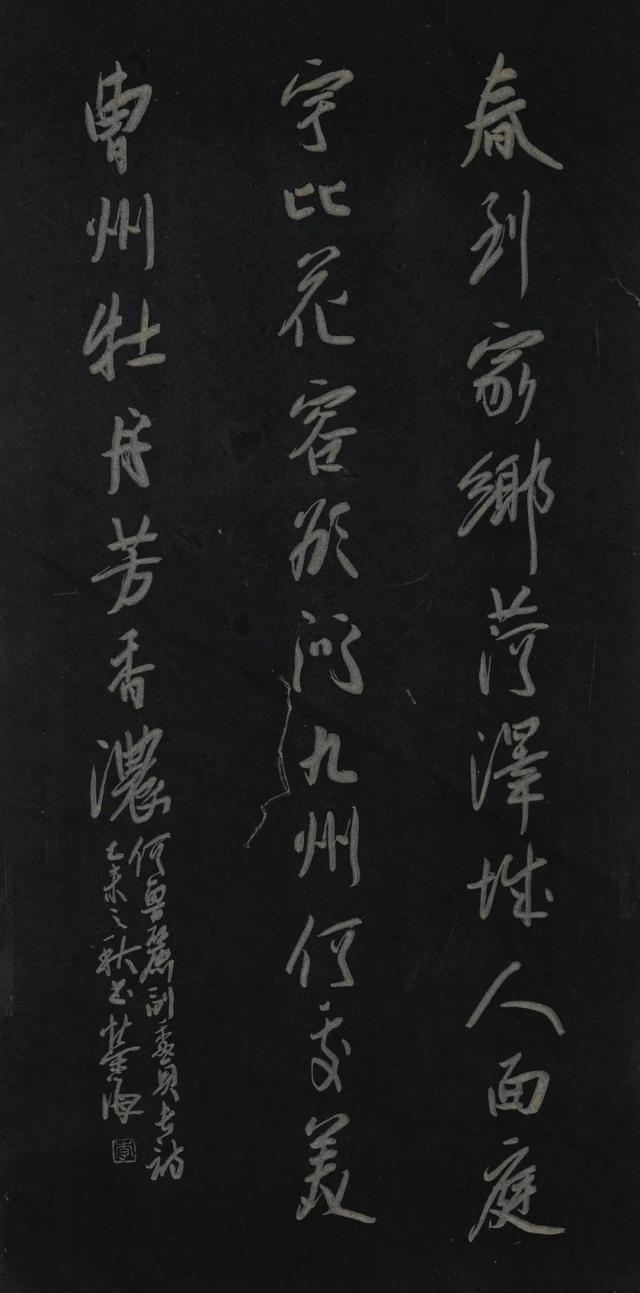 春到家鄉菏澤城人面庭
宇比花容欲问九州何処美
曹州牡丹芳香濃
何魯麗副委員長詩
乙未之秋书